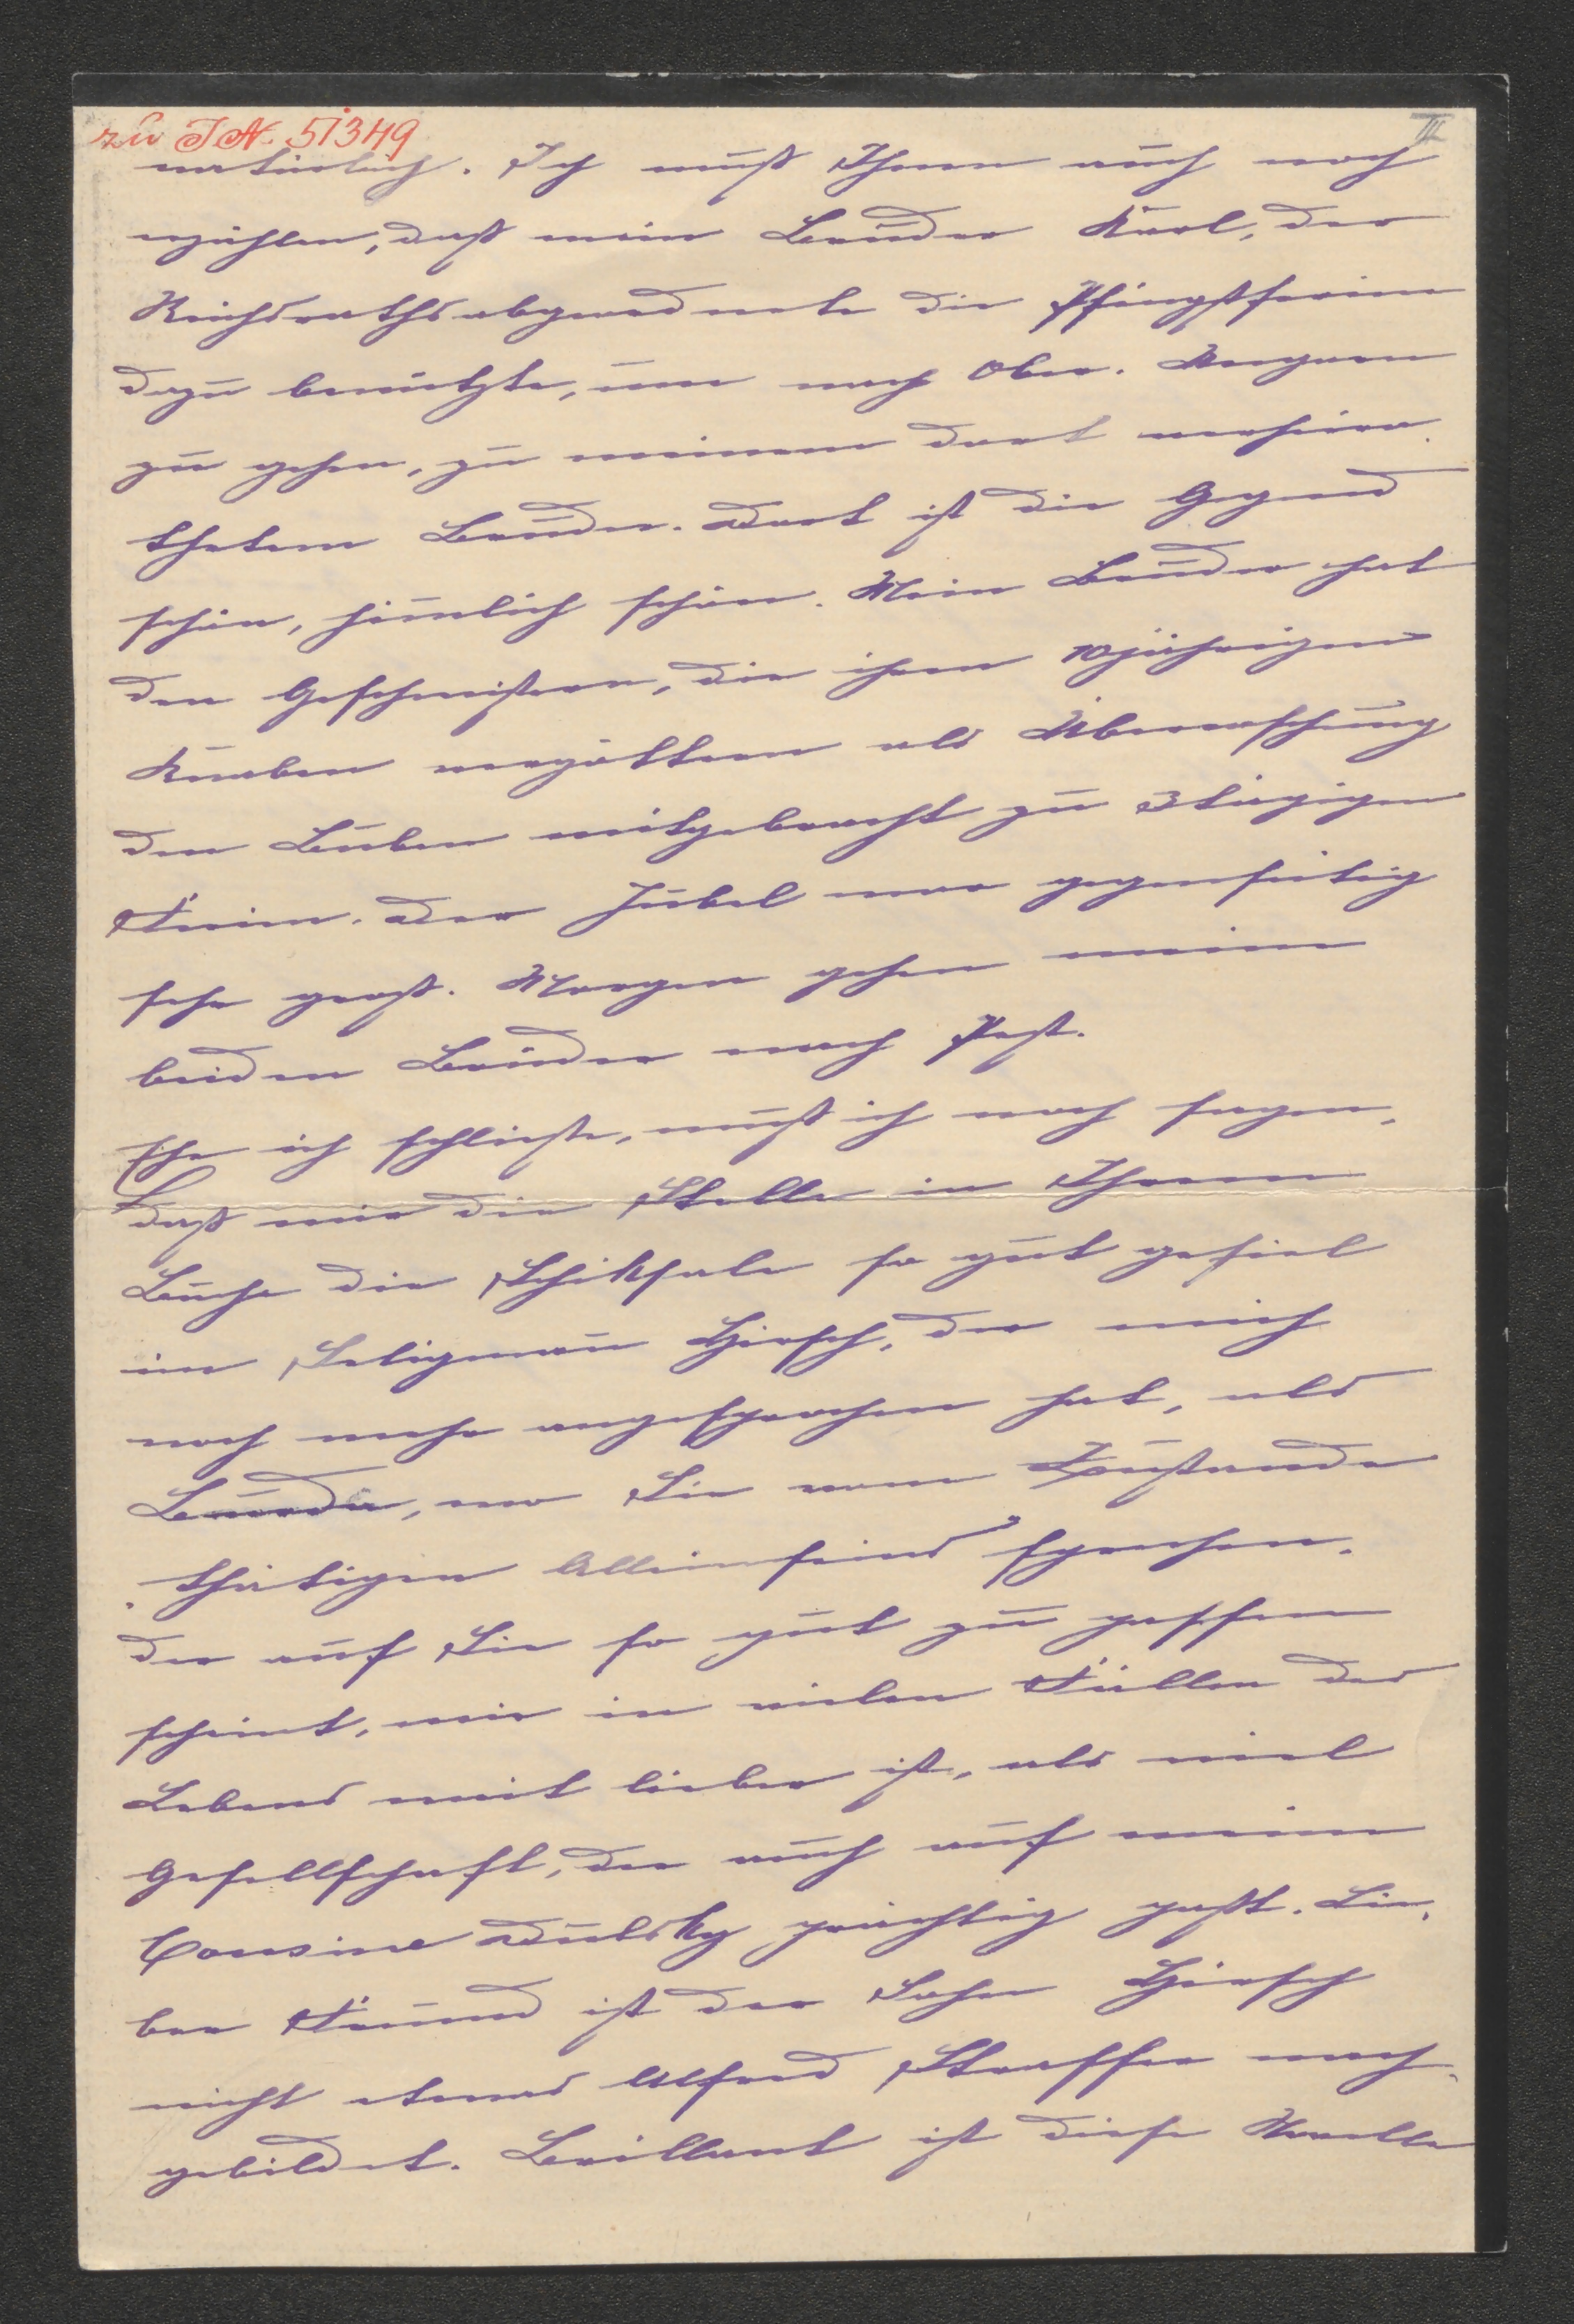 zu IN. 51349
III
natürlich. Ich muß Ihnen auch noch
erzählen, daß mein Bruder Karl, der
Reichsrathsabgeordnete die Pfingstferien
dazu benützte, um nach Ober-Ungarn
zu gehen, zu meinem dort verheira-
thetem Bruder. Dort ist die Gegend
schön, himlich schön. Mein Bruder hat
den Geschwistern, die ihren 10jährigen
Knaben vergöttern als Überraschung
den Buben mitgebracht zu 3tägigen
Ferien. Der Jubel war gegenseitig
sehr groß. Morgen gehen meine
beiden Brüder nach Pest.
Ehe ich schließe, muß ich noch sagen,
daß mir die Stelle in Ihrem
Buche die Schiksale so gut gefiel
im Seligman Hirsch, der mich
noch mehr angesprochen hat, als
Burda, wo Sie vom Zustande
„thätigen Alleinseins" sprechen.
der auf Sie so gut zu passen
scheint, mir in vielen Fällen des
Lebens weit lieber ist, als viel
Gesellschaft, der auch auf meine
Cousine Dulsky prächtig paßt. Lie-
ber Freund ist der Sohn Hirsch
nicht etwas Alfred Strasser nach-
gebildet. Brillant ist diese Novelle